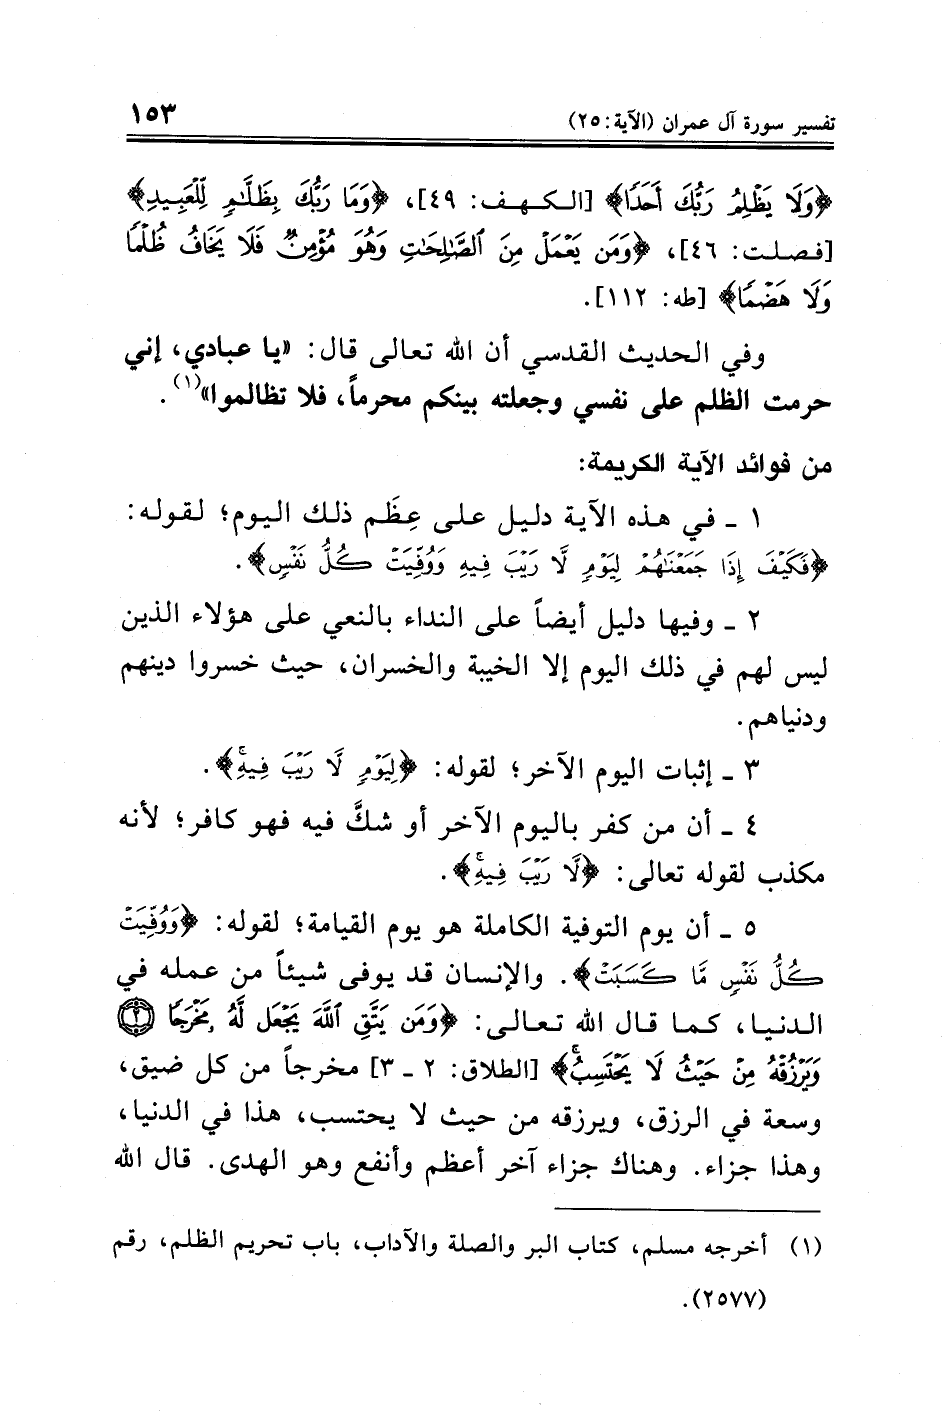 تفسير سورة آل عمران (الآية: ٢٥) ١٥٣
﴿وَلَا يَظْلِمُ رَبُّكَ أَحَدًا﴾ [الكهف: ٤٩]، ﴿وَمَا رَبُّكَ بِظَلَّٰمٍ لِّلْعَبِيدِ﴾
[فصلت: ٤٦]، ﴿وَمَن يَعْمَلْ مِنَ ٱلصَّٰلِحَٰتِ وَهُوَ مُؤْمِنٌ فَلَا يَخَافُ ظُلْمًا
وَلَا هَضْمًا﴾ [طه: ١١٢].
وفي الحديث القدسي أن الله تعالى قال: «يا عبادي، إني
حرمت الظلم على نفسي وجعلته بينكم محرماً، فلا تظالموا»(١).
من فوائد الآية الكريمة:
١ ـ في هذه الآية دليل على عِظَم ذلك اليوم؛ لقوله:
﴿فَكَيْفَ إِذَا جَمَعْنَٰهُمْ لِيَوْمٍ لَّا رَيْبَ فِيهِ وَوُفِّيَتْ كُلُّ نَفْسٍ﴾.
٢ ـ وفيها دليل أيضاً على النداء بالنعي على هؤلاء الذين
ليس لهم في ذلك اليوم إلا الخيبة والخسران، حيث خسروا دينهم
ودنياهم.
٣ ـ إثبات اليوم الآخر؛ لقوله: ﴿لِيَوْمٍ لَّا رَيْبَ فِيهِۚ﴾.
٤ ـ أن من كفر باليوم الآخر أو شكَّ فيه فهو كافر؛ لأنه
مكذب لقوله تعالى: ﴿لَّا رَيْبَ فِيهِۚ﴾.
٥ ـ أن يوم التوفية الكاملة هو يوم القيامة؛ لقوله: ﴿وَوُفِّيَتْ
كُلُّ نَفْسٍ مَّا كَسَبَتْ﴾. والإنسان قد يوفى شيئاً من عمله في
الدنيا، كما قال الله تعالى: ﴿وَمَن يَتَّقِ ٱللَّهَ يَجْعَل لَّهُۥ مَخْرَجًا ٢
وَيَرْزُقْهُ مِنْ حَيْثُ لَا يَحْتَسِبُۚ﴾ [الطلاق: ٢ ـ ٣] مخرجاً من كل ضيق،
وسعة في الرزق، ويرزقه من حيث لا يحتسب، هذا في الدنيا،
وهذا جزاء. وهناك جزاء آخر أعظم وأنفع وهو الهدى. قال الله
(١) أخرجه مسلم، كتاب البر والصلة والآداب، باب تحريم الظلم، رقم
(٢٥٧٧).